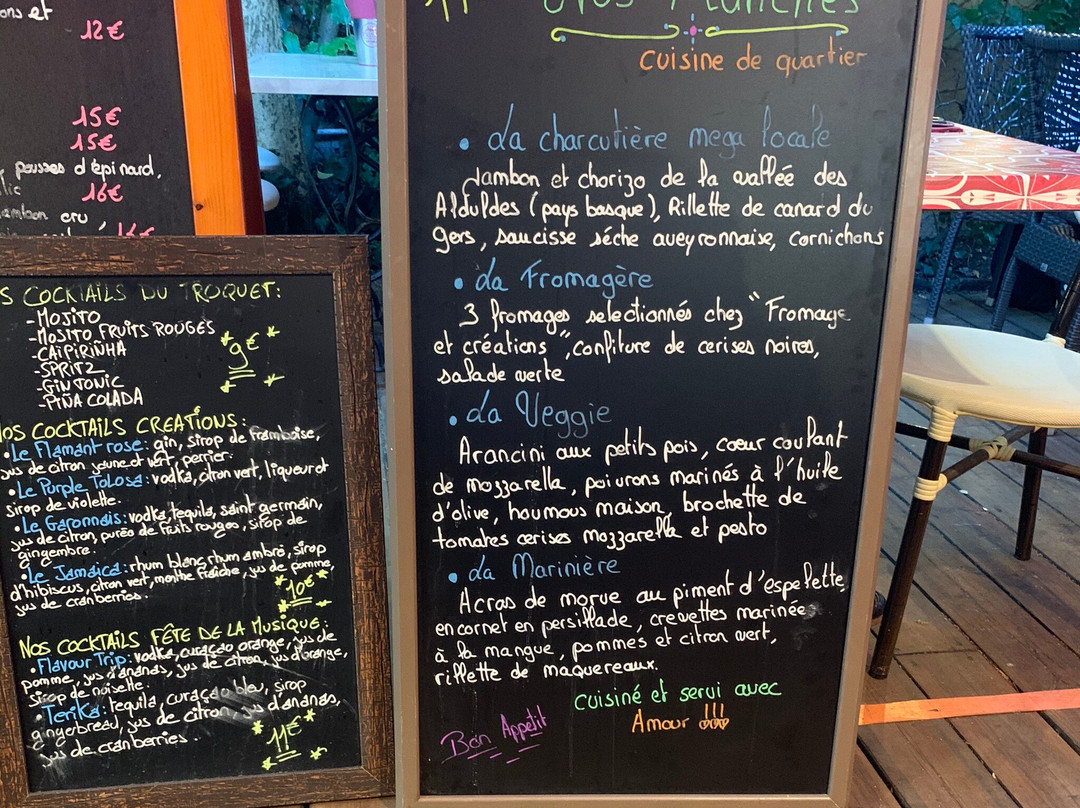 ons et
12€
15€
15€
pousses d'épinard,
16€
cru
COCKTAILS DU TROQUET:
-MOJITO
-MOJITO FRUITS ROUGES
-CAÏPIRIÑHA
-SPRITZ
-GIN TONIC
-PIÑA COLADA
*9€*
NOS COCKTAILS CREATIONS:
•Le Flamant rose: gin, sirop de framboise,
jus de citron jaune et vert, perrier.
•Le Purple Tolosa: vodka, citron vert, liqueur et
sirop de violette.
•Le Garonnais: vodka, tequila, saint germain,
jus de citron, purée de fruits rouges, sirop de
gingembre.
•Le Jamaïca: rhum blanc, rhum ambré, sirop
d'hibiscus, citron vert, menthe fraîche, jus de pomme,
jus de cranberries.
*10€*
NOS COCKTAILS FÊTE DE LA MUSIQUE:
•Flavour Trip: vodka, curaçao orange, jus de
pomme, jus d'ananas, jus de citron, jus d'orange,
sirop de noisette.
•TeriKa: tequila, curaçao bleu, sirop
gingerbread, jus de citron, jus d'ananas,
jus de cranberries.
*11€*
cuisine de quartier
• La charcutière mega locale
Jambon et chorizo de la vallée des
Alduldes (pays basque), Rillette de canard du
gers, saucisse séche aveyronnaise, cornichons
• La Fromagère
3 fromages selectionnés chez "Fromage
et créations", confiture de cerises noires,
salade verte
• La Veggie
Arancini aux petits pois, cœur coulant
de mozzarella, poivrons marinés à l'huile
d'olive, houmous maison, brochette de
tomates cerises mozzarella et pesto
• La Marinière
Acras de morue au piment d'espelette,
encornet en persillade, crevettes marinées
à la mangue, pommes et citron vert,
rillette de maquereaux.
cuisiné et servi avec
Amour !!!
Bon Appetit